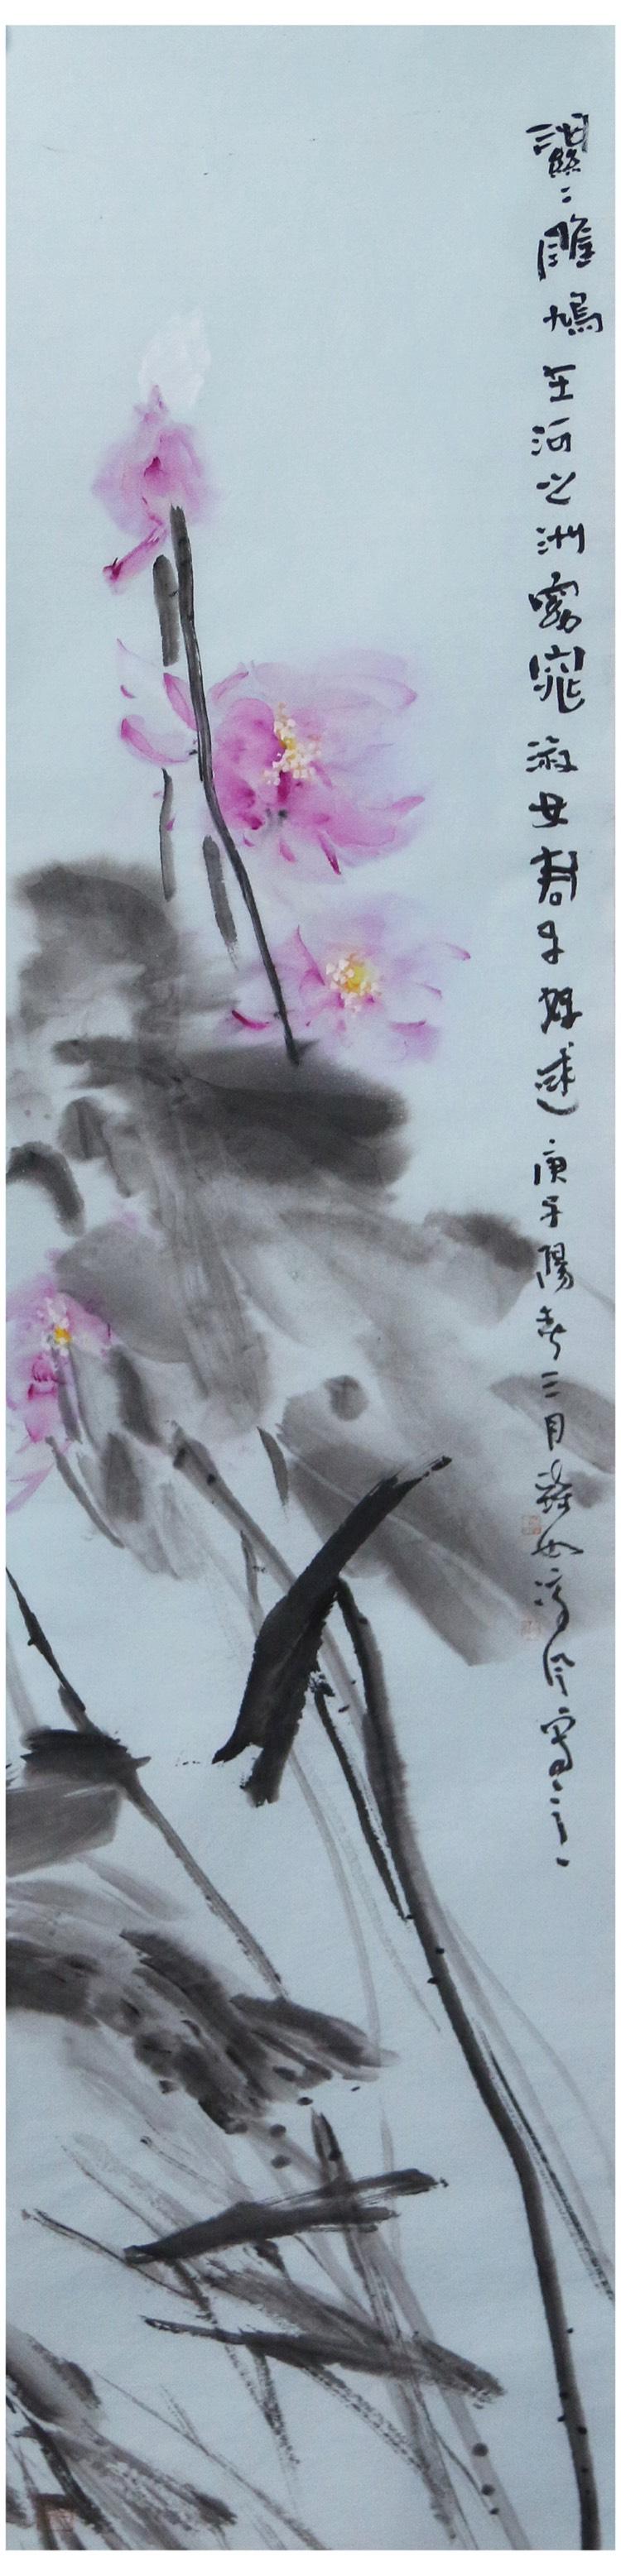 關〻雎鳩在河之洲窈窕淑女君子好逑庚子陽春三月